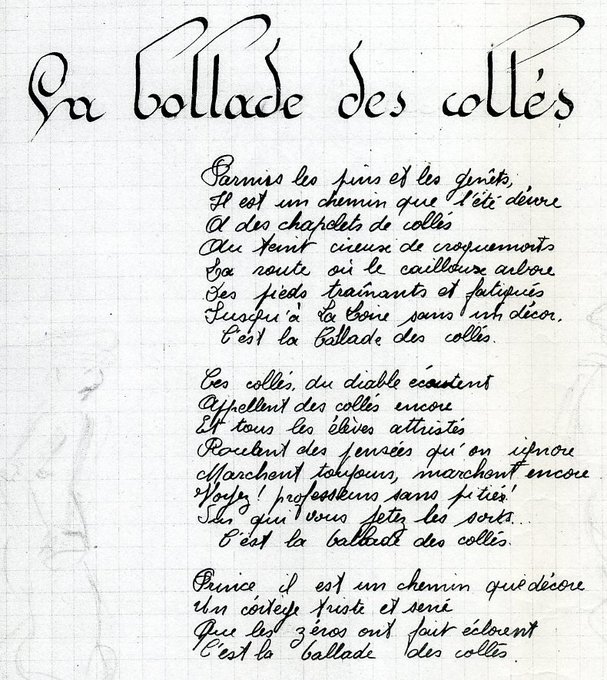 La ballade des collés
Parmis les pins et les genêts,
Il est un chemin que l'été dévore
A des chapelets de collés
Au teint cireux de croquemorts
La route où le cailloux arbore
Des pieds traînants et fatigués
Jusqu'à La Loire sans un décor.
C'est la ballade des collés.
Ces collés, du diable écoutent
Appellent des collés encore
Et tous les élèves attristés
Roulent des pensées qu'on ignore
Marchent toujours, marchent encore
Voyez! professeurs sans pitiés!
Sur qui vous jetez les sorts...
C'est la ballade des collés.
Prince il est un chemin que décore
Un cortège triste et serié
Que les zéros ont fait éclorent
C'est la ballade des collés.